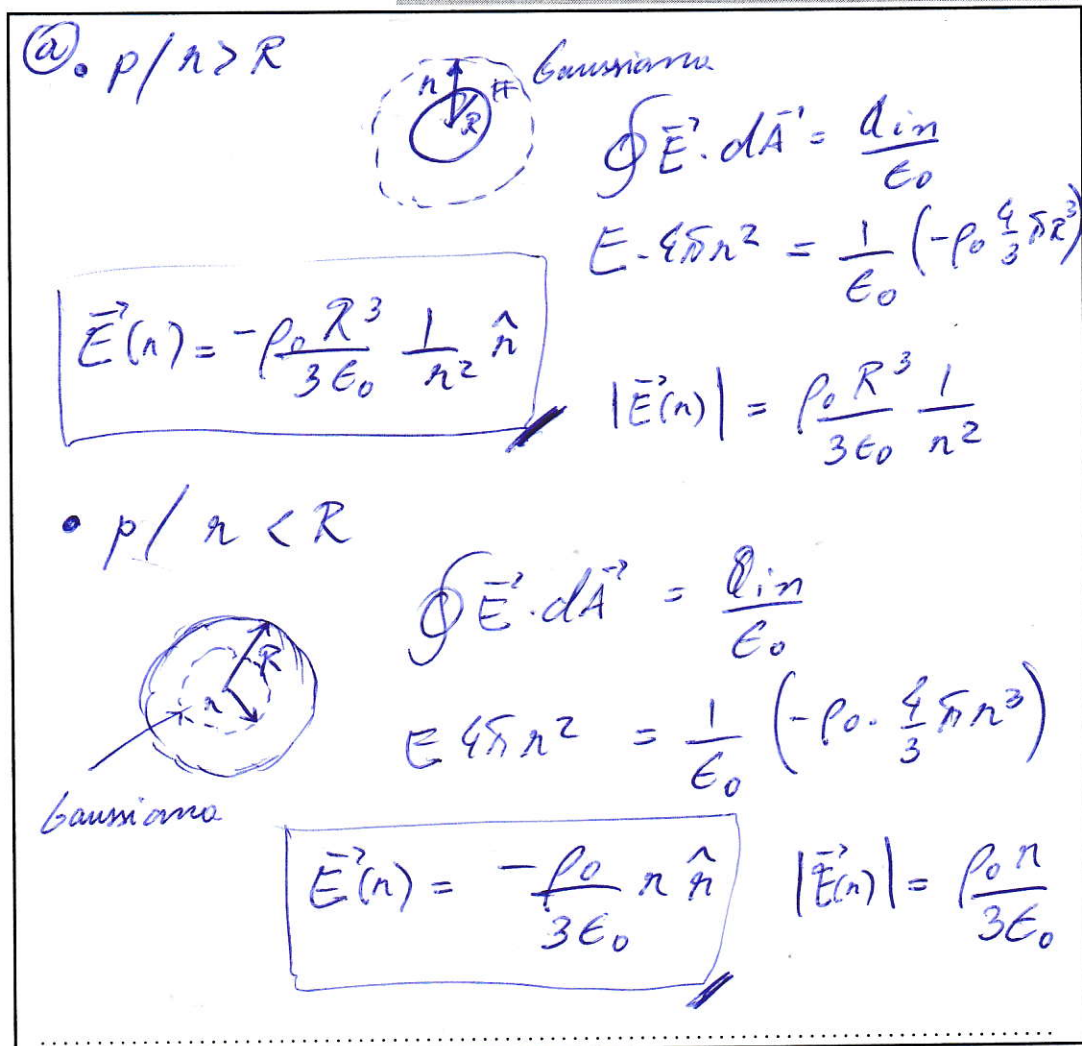 (a). p/ r > R
r R Gaussiana
∮ E⃗ · dA⃗ = Qin / ε₀
E · 4πr² = 1/ε₀ (-ρ₀ 4/3 πR³)
E⃗(r) = -ρ₀ R³ / 3ε₀ 1/r² r̂
|E⃗(r)| = ρ₀ R³ / 3ε₀ 1/r²
• p/ r < R
∮ E⃗ · dA⃗ = Qin / ε₀
r R
E 4πr² = 1/ε₀ (-ρ₀ · 4/3 πr³)
Gaussiana
E⃗(r) = -ρ₀ / 3ε₀ r r̂
|E⃗(r)| = ρ₀ r / 3ε₀